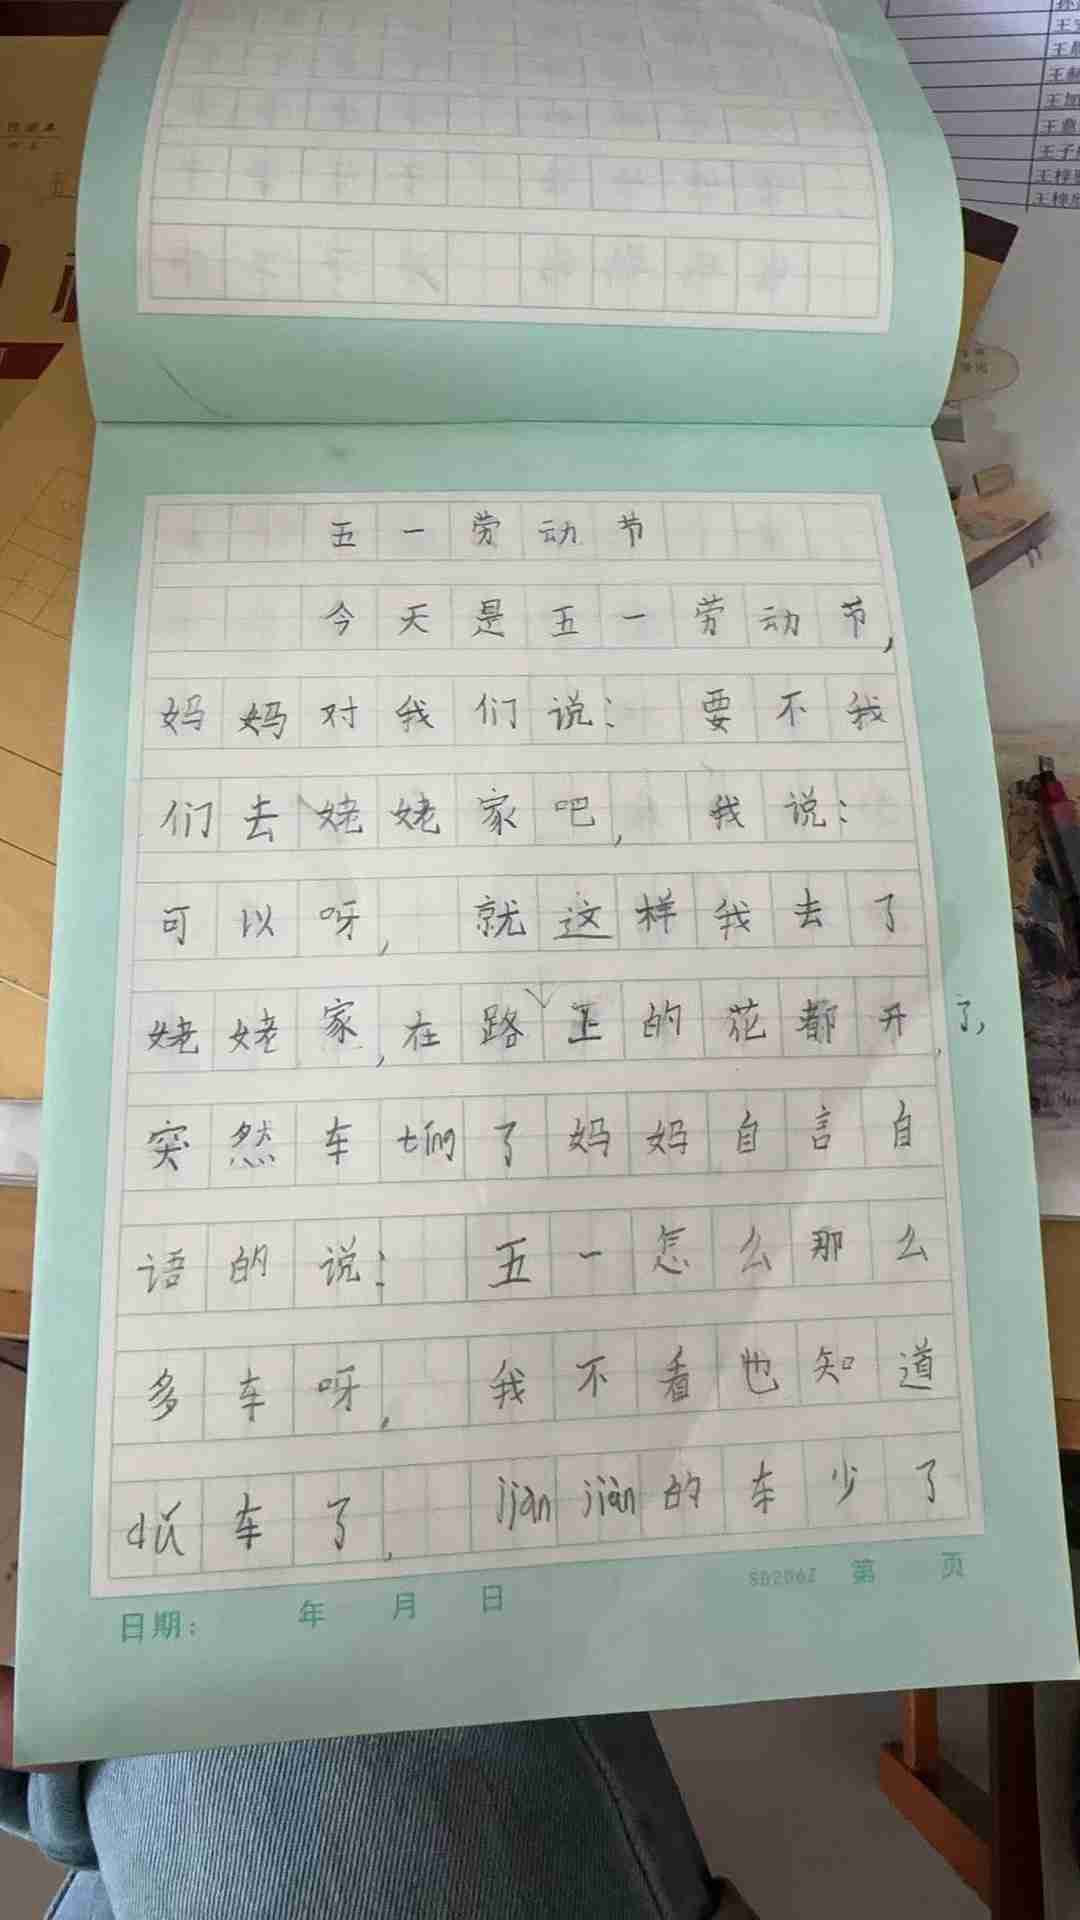 五一劳动节
今天是五一劳动节,
妈妈对我们说: 要不我
们去姥姥家吧, 我说:
可以呀, 就这样我去了
姥姥家,在路上的花都开了,
突然车tíng了妈妈自言自
语的说: 五一怎么那么
多车呀, 我不看也知道
dǔ车了, jiàn jiàn的车少了
日期: 年 月 日
SD206Z 第 页